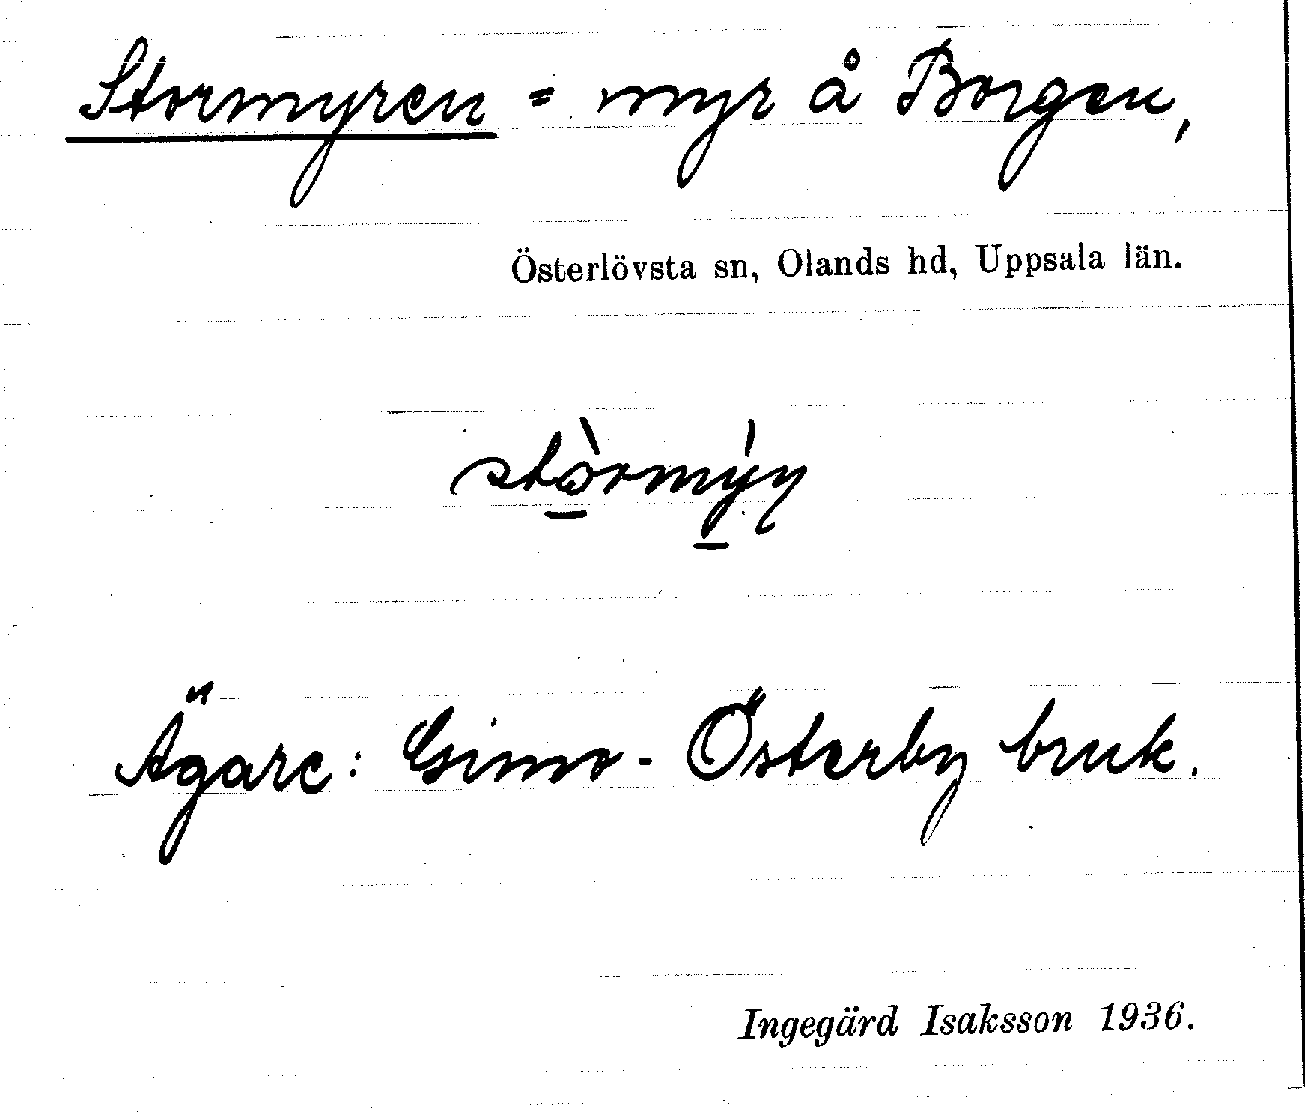 Stormyren = myr å Borgen,
Österlövsta sn, Olands hd, Uppsala län.
stòrmýn
Ägare: Gimo-Österby bruk.
Ingegärd Isaksson 1936.